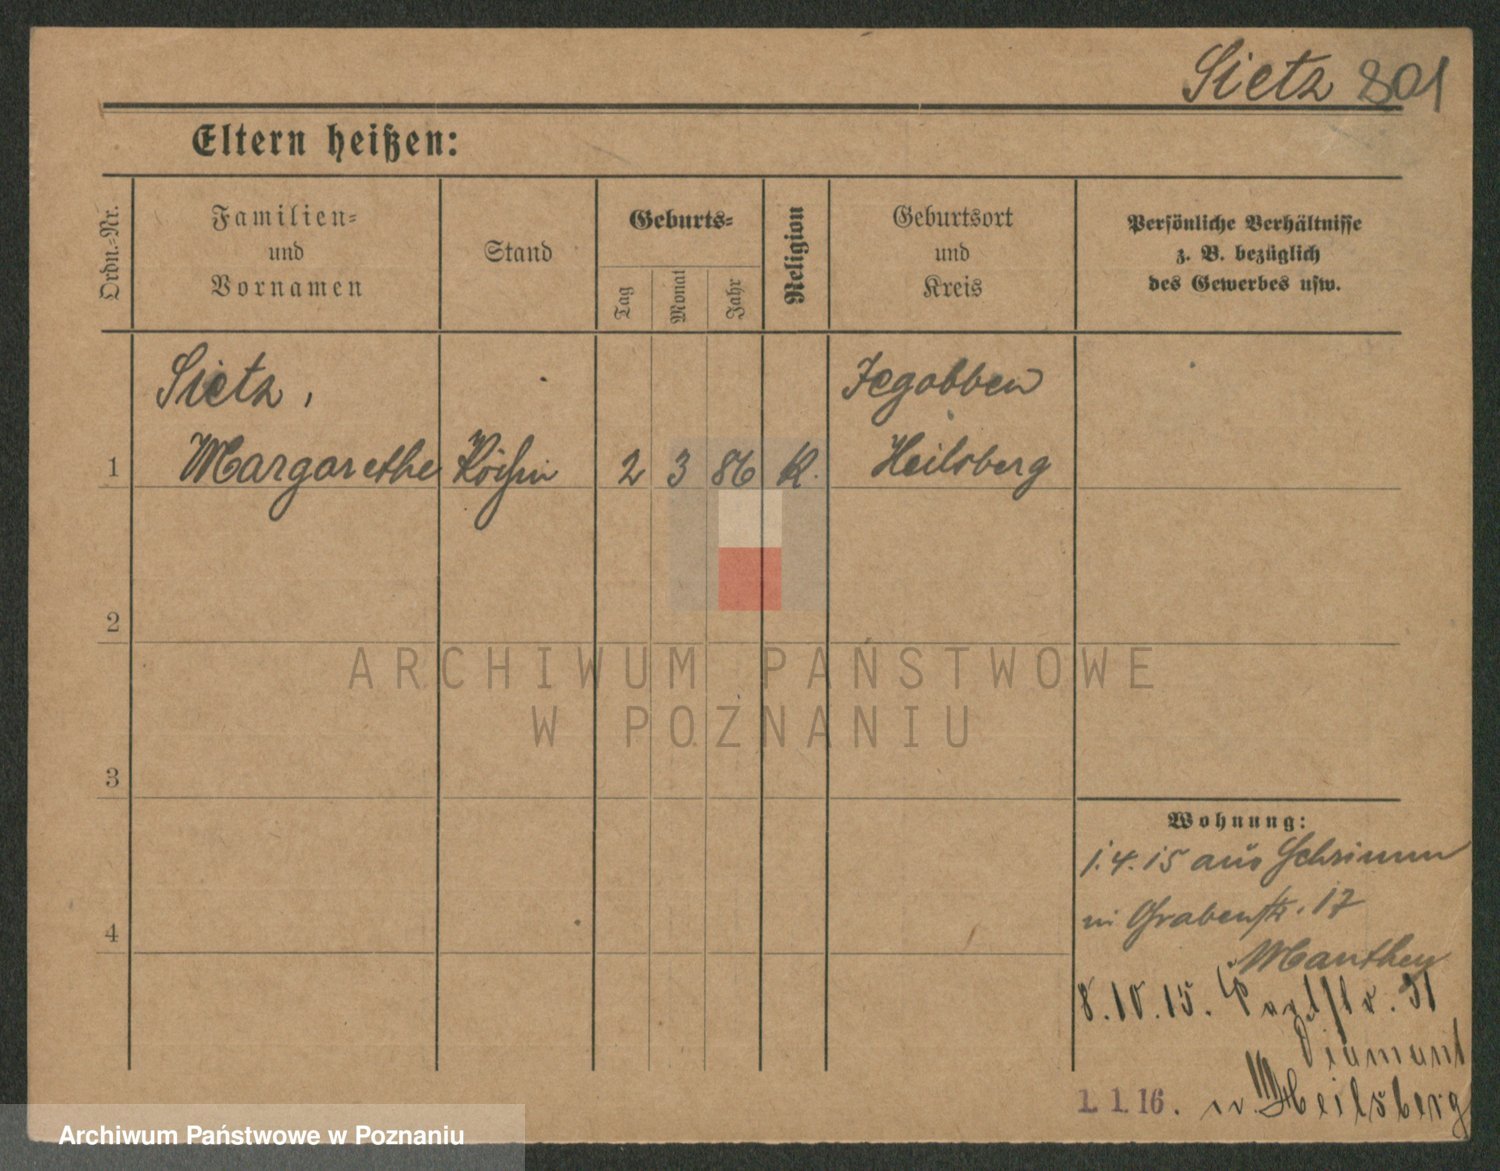 Sietz 801
Eltern heißen:
Ordn.-Nr.
Familien-
und
Vornamen
Stand
Geburts-
Tag
Monat
Jahr
Religion
Geburtsort
und
Kreis
Persönliche Verhältnisse
z. B. bezüglich
des Gewerbes usw.
Sietz,
Jegobben
1 Margarethe Köchin 2 3 86 K. Heilsberg
2
ARCHIWUM PAŃSTWOWE
W POZNANIU
3
Wohnung:
1.4.15 aus Schrimm
in Grabenstr. 17
4
Manthey
8.10.15. 31
Diamant
1. 1. 16. n. Heilsberg
Archiwum Państwowe w Poznaniu